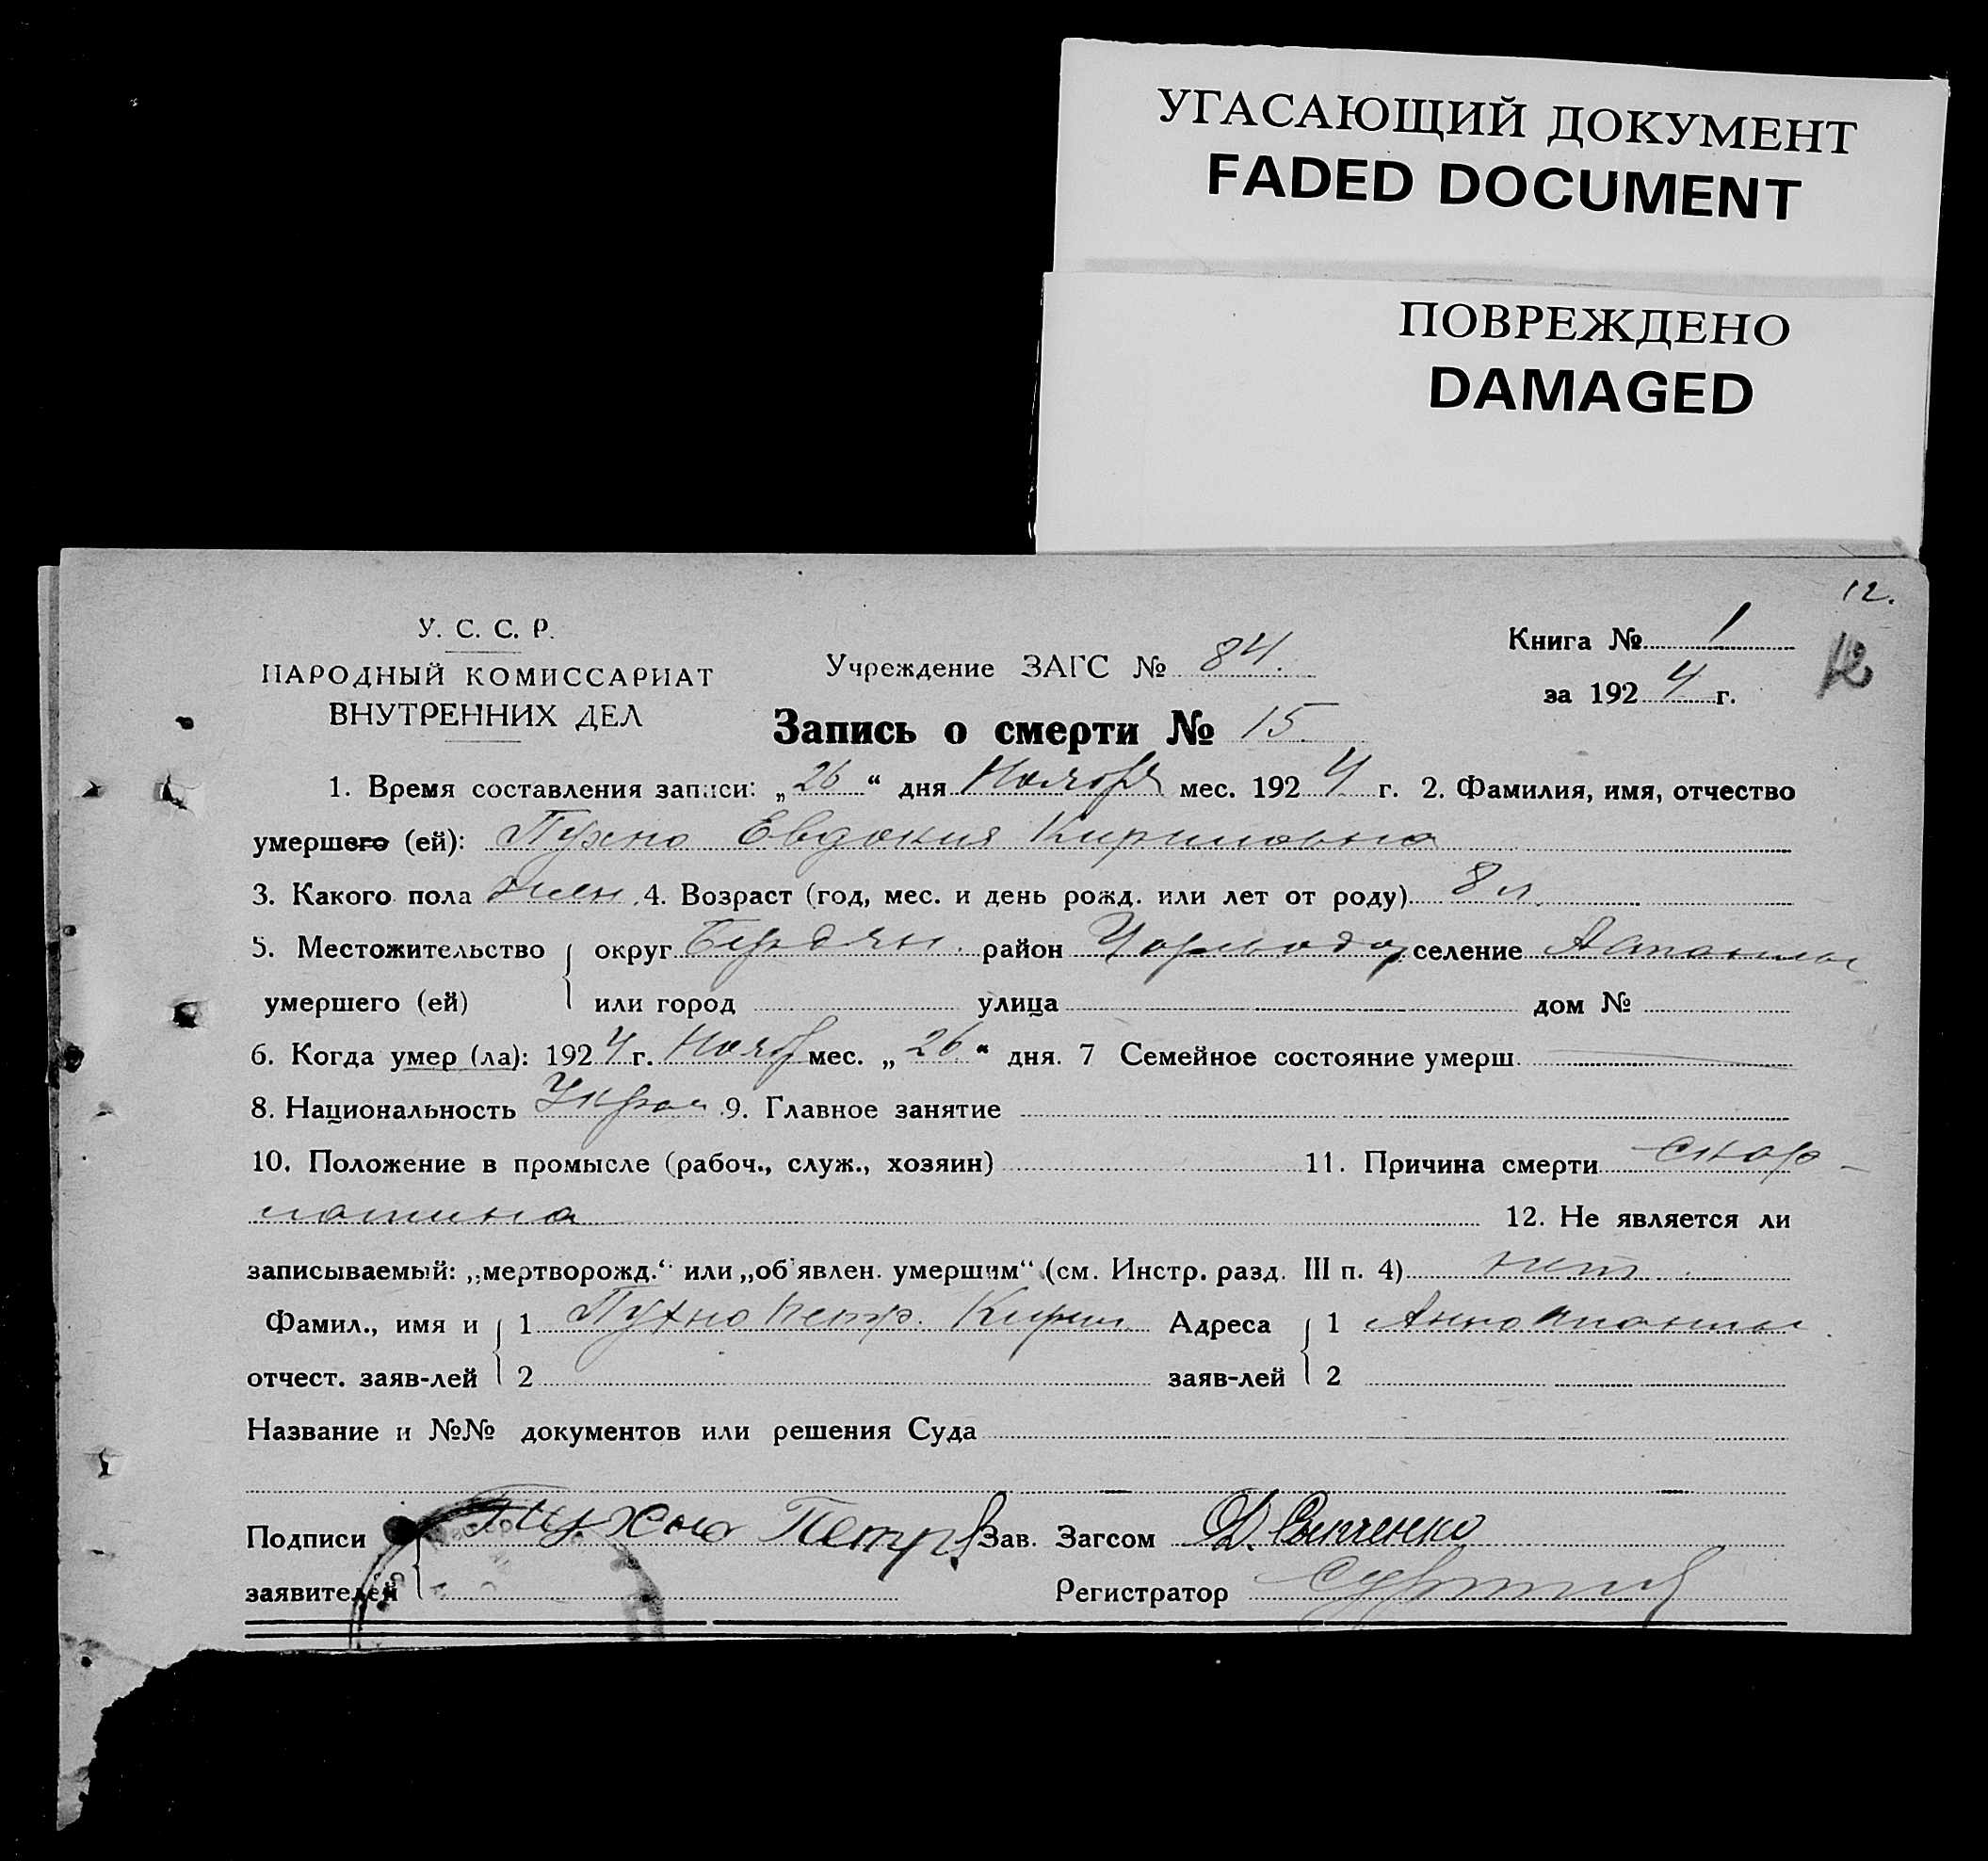 УГАСАЮЩИЙ ДОКУМЕНТ
FADED DOCUMENT
ПОВРЕЖДЕНО
DAMAGED
12.
12
У. С. С. Р.
НАРОДНЫЙ КОМИССАРИАТ
ВНУТРЕННИХ ДЕЛ
Учреждение ЗАГС № 84.
Книга № 1
за 1924 г.
Запись о смерти № 15.
1. Время составления записи: „26“ дня Ноября мес. 1924 г. 2. Фамилия, имя, отчество
умершего (ей): Пухно Евдокия Кириловна
3. Какого пола жен. 4. Возраст (год, мес. и день рожд. или лет от роду) 8 л.
5. Местожительство округ Бердян. район селение
умершего (ей) или город улица дом №
6. Когда умер (ла): 1924 г. Нояб мес. „26“ дня. 7 Семейное состояние умерш.
8. Национальность Укра 9. Главное занятие
10. Положение в промысле (рабоч., служ., хозяин) 11. Причина смерти скар-
латина 12. Не является ли
записываемый: „мертворожд.“ или „об'явлен. умершим“ (см. Инстр. разд. III п. 4) нет.
Фамил., имя и 1 Пухно Петр. Кирил. Адреса 1
отчест. заяв-лей 2 заяв-лей 2
Название и №№ документов или решения Суда
Подписи Пухно Петр Зав. Загсом
заявителей Регистратор